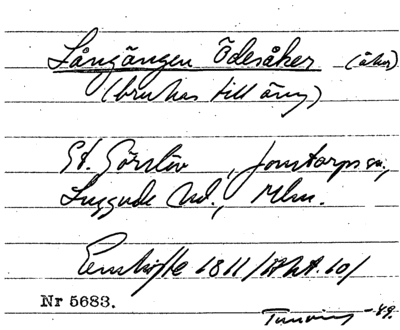 Långängen Ödesåker (åker)
(brukas till äng)
St. Görslöv, Jonstorps sn,
Luggude hd., Mlm.
Enskifte 1811 /Akt. 10/
Nr 5683.
-49.